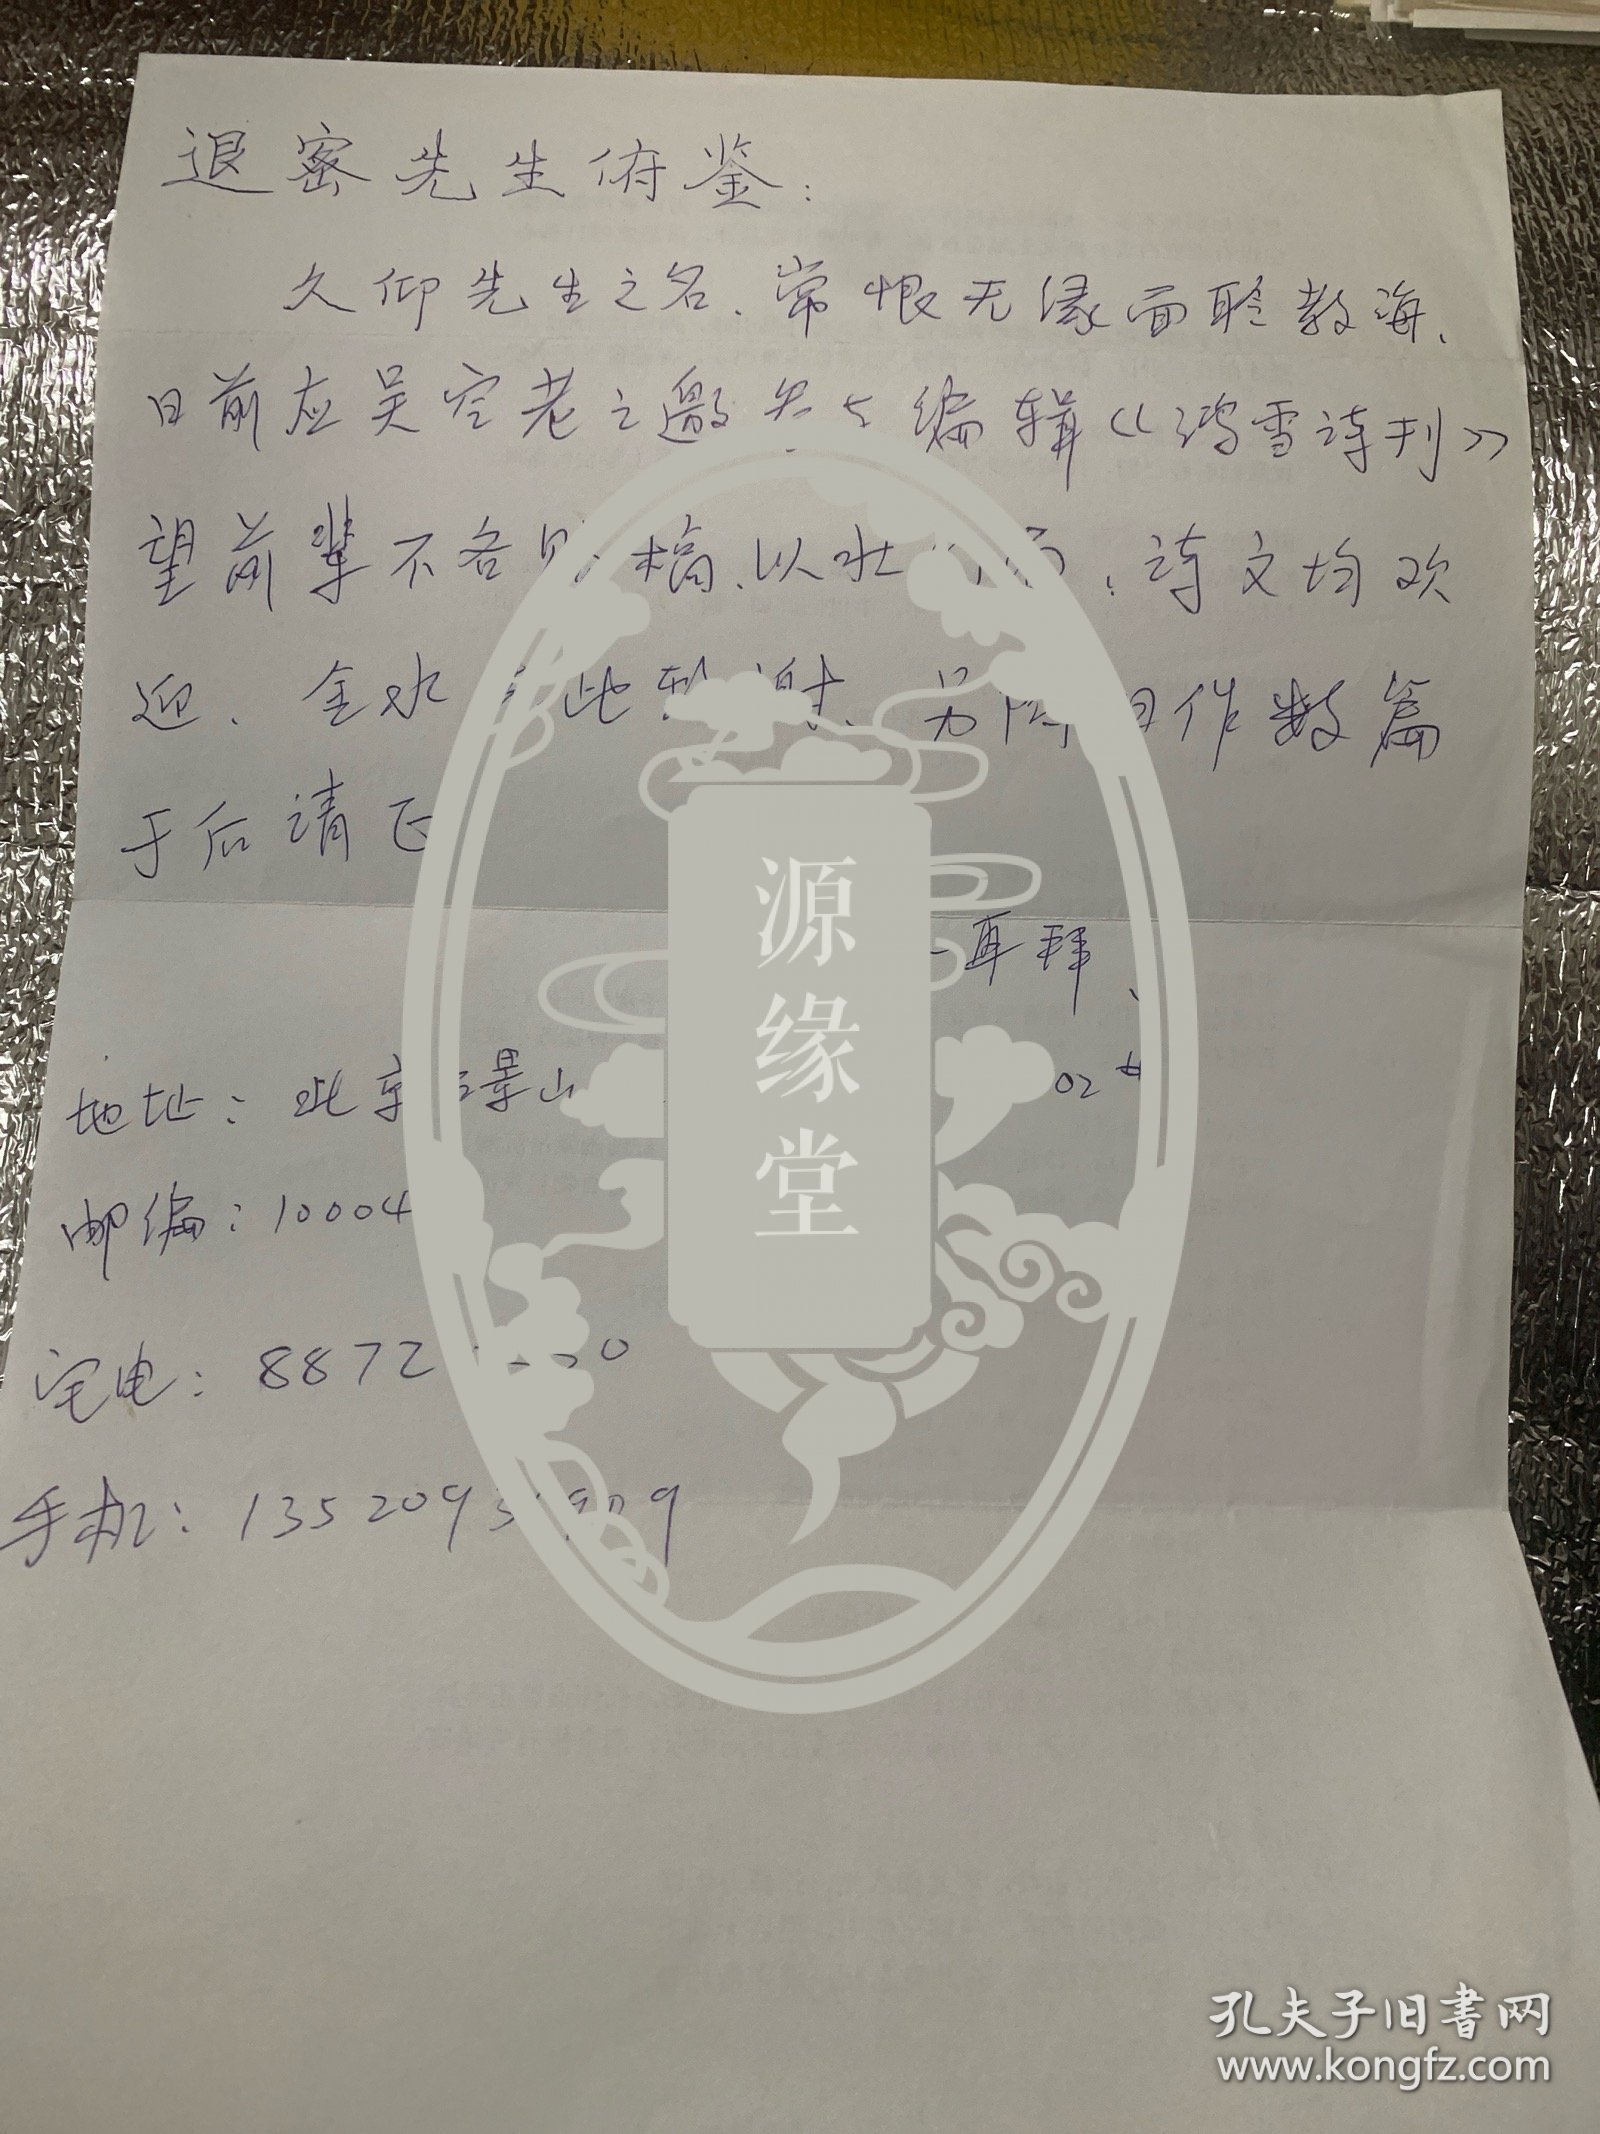 退密先生俯鉴：
久仰先生之名、常恨无缘面聆教诲、
日前应吴空老之邀 编辑《鸿雪诗刊》
望前辈不吝 稿、以壮 ；诗文均欢
迎、金水 此 谢、另 旧作数篇
于后请正
再拜
地址：北京 景山 02
邮编：10004
宅电：8872 0
手机：1352093 9
源缘堂
孔夫子旧书网
www.kongfz.com